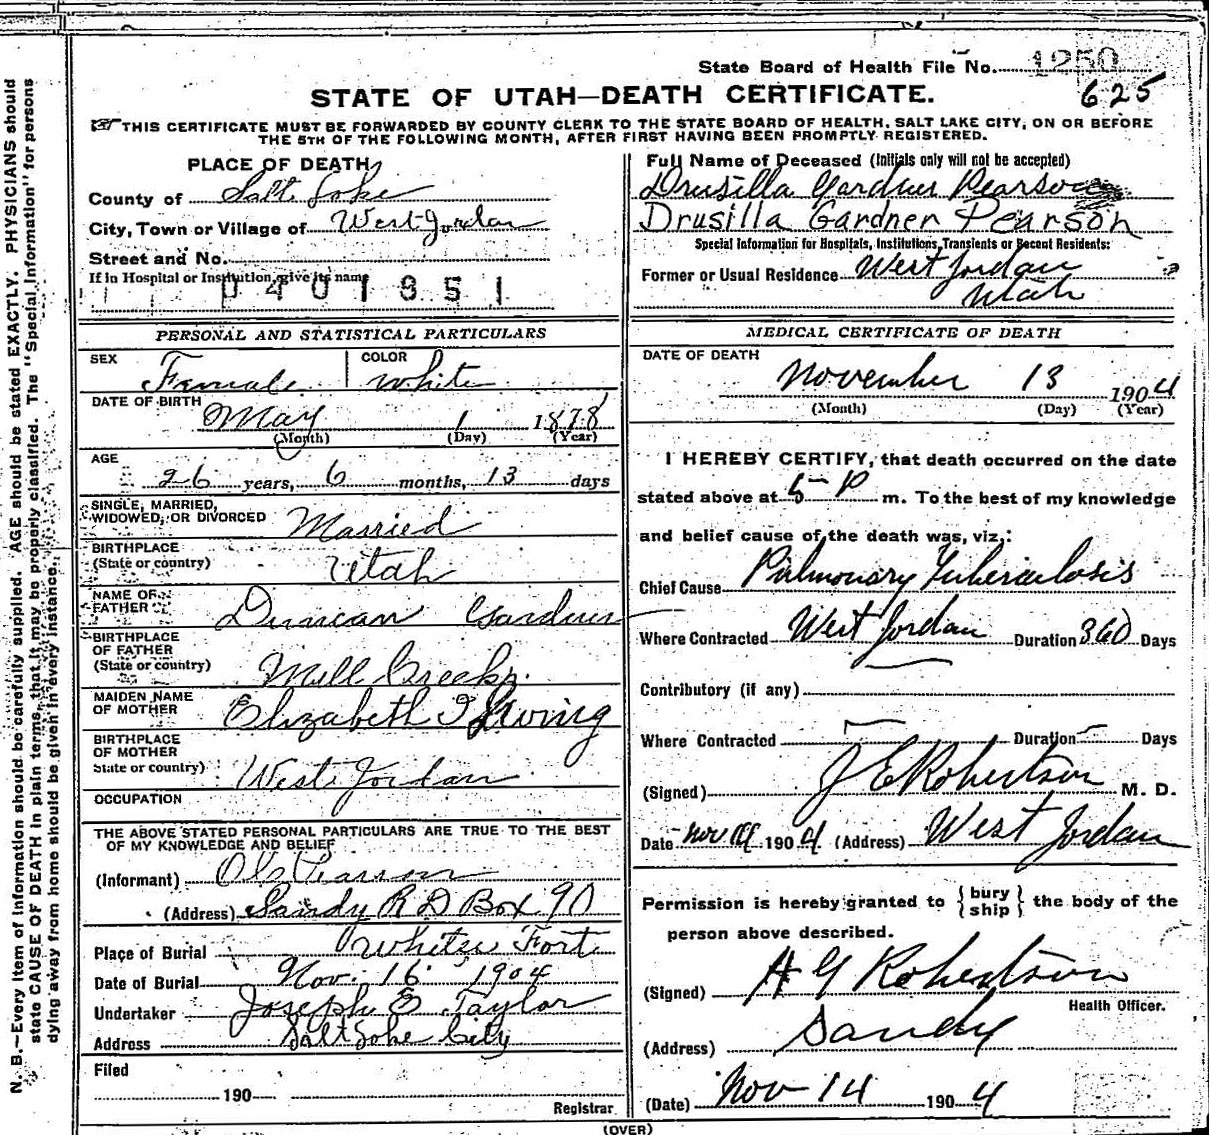 State Board of Health File No. 1250
625
STATE OF UTAH—DEATH CERTIFICATE.
THIS CERTIFICATE MUST BE FORWARDED BY COUNTY CLERK TO THE STATE BOARD OF HEALTH, SALT LAKE CITY, ON OR BEFORE
THE 5TH OF THE FOLLOWING MONTH, AFTER FIRST HAVING BEEN PROMPTLY REGISTERED.
PLACE OF DEATH
County of Salt Lake
City, Town or Village of West Jordan
Street and No.
If in Hospital or Institution, give its name
0401851
PERSONAL AND STATISTICAL PARTICULARS
SEX Female COLOR White
DATE OF BIRTH May 1 1878
(Month) (Day) (Year)
AGE
26 years, 6 months, 13 days
SINGLE, MARRIED,
WIDOWED, OR DIVORCED Married
BIRTHPLACE
(State or country) Utah
NAME OF
FATHER Duncan Gardner
BIRTHPLACE
OF FATHER
(State or country) Mill Creek
MAIDEN NAME
OF MOTHER Elizabeth Irving
BIRTHPLACE
OF MOTHER
State or country) West Jordan
OCCUPATION
THE ABOVE STATED PERSONAL PARTICULARS ARE TRUE TO THE BEST
OF MY KNOWLEDGE AND BELIEF
(Informant) Ole Pearson
(Address) Sandy R D Box 90
Place of Burial Whites Fort
Date of Burial Nov. 16 1904
Undertaker Joseph E Taylor
Address Salt Lake City
Filed
190
Registrar
Full Name of Deceased (Initials only will not be accepted)
Drusilla Gardner Pearson
Drusilla Gardner Pearson
Special Information for Hospitals, Institutions, Transients or Recent Residents:
Former or Usual Residence West Jordan
Utah
MEDICAL CERTIFICATE OF DEATH
DATE OF DEATH
November 13 1904
(Month) (Day) (Year)
I HEREBY CERTIFY, that death occurred on the date
stated above at 5 P m. To the best of my knowledge
and belief cause of the death was, viz.:
Chief Cause Pulmonary Tuberculosis
Where Contracted West Jordan Duration 360 Days
Contributory (if any)
Where Contracted Duration Days
(Signed) J E Robertson M. D.
Date Nov 1904 (Address) West Jordan
Permission is hereby granted to { bury ship } the body of the
person above described.
(Signed) H G Robertson
Health Officer.
(Address) Sandy
(Date) Nov 14 1904
(OVER)
N. B.—Every item of information should be carefully supplied. AGE should be stated EXACTLY. PHYSICIANS should
state CAUSE OF DEATH in plain terms, that it may be properly classified. The "Special Information" for persons
dying away from home should be given in every instance.